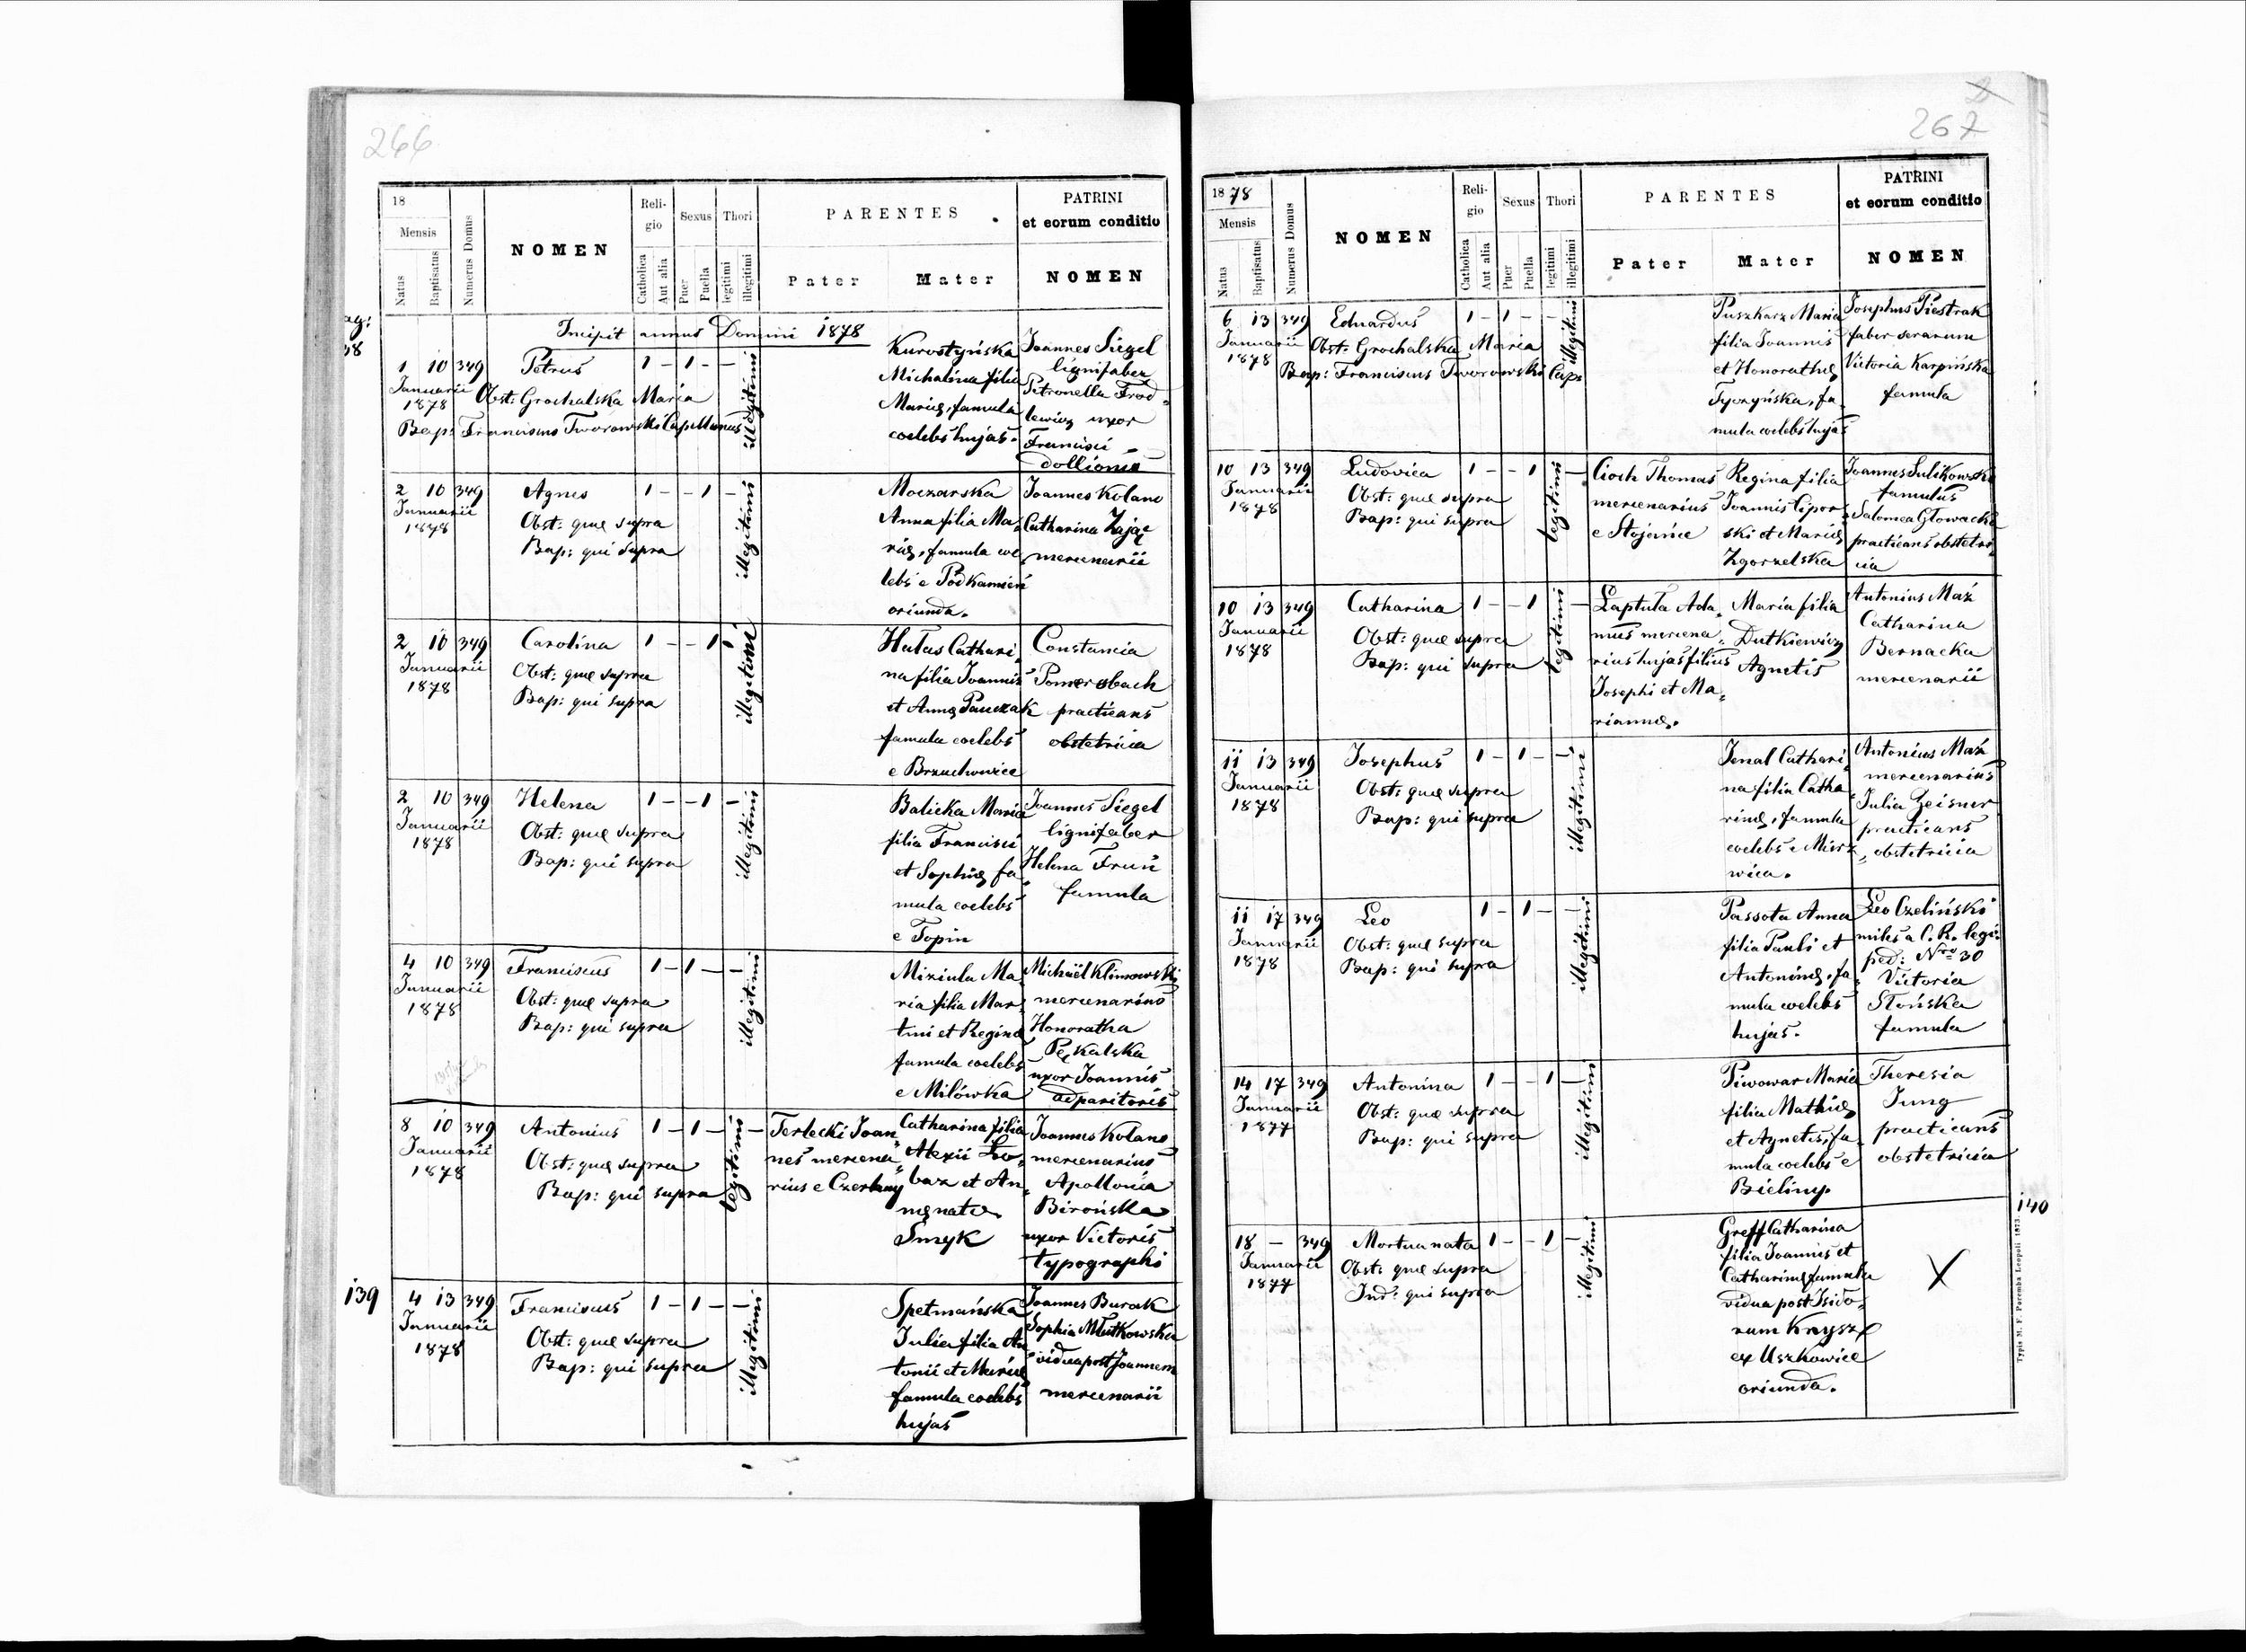 266
18
Mensis
Natus
Baptisatus
Numerus Domus
NOMEN
Reli-
gio
Catholica
Aut alia
Sexus
Puer
Puella
Thori
legitimi
illegitimi
PARENTES
Pater
Mater
PATRINI
et eorum conditio
NOMEN
Incipit annus Domini 1878
1 10 349 Petrus 1 - 1 - -
Januarii
1878
Obst: Grochalska Maria
Bap: Franciscus Tworowski Capellanus
illegitimi
Michalina filia
Marię, famula
coelebs hujas.
Joannes Siegel
lignifaber
Petronella Frod-
lewicz uxor
Francisci
dollionis
2 10 349 Agnes 1 - - 1 -
Januarii
1878
Obst: quę supra
Bap: qui supra
illegitimi
Moczarska
Anna filia Ma-
rię, famula coe
lebs e Podkamień
oriunda.
Joannes Kolano
Catharina Zając
mercenarii
2 10 349 Carolina 1 - - 1
Januarii
1878
Obst: quę supra
Bap: qui supra
illegitimi
Cathari-
na filia Joannis
et Annę Panczak
famula coelebs
e Brzuchowice
Constancia
Pomersbach
practicans
obstetricia
2 10 349 Helena 1 - - 1 -
Januarii
1878
Obst: quę supra
Bap: qui supra
illegitimi
Balicka Maria
filia Francisci
et Sophię fa
mula coelebs
e Topin
Joannes Siegel
lignifaber
Helena Fruń
famula
4 10 349 Franciscus 1 - 1 - -
Januarii
1878
Obst: quę supra
Bap: qui supra
illegitimi
Miziula Ma
ria filia Mar-
tini et Reginę
famula coelebs
e Milówka
Michaël Klimowski
mercenarius
Honoratha
Pękalska
uxor Joannis
adparitoris
8 10 349 Antonius 1 - 1 - -
Januarii
1878
Obst: quę supra
Bap: qui supra
legitimi
Terlecki Joan-
nes mercena-
rius e Czerlany
Catharina filia
Alexii Ło-
baz et An-
nę natę
Smyk
Joannes Kolano
mercenarius
Apollonia
Birońska
uxor Victoris
typographi
139
4 13 349 Franciscus 1 - 1 - -
Januarii
1878
Obst: quę supra
Bap: qui supra
illegitimi
Spetmańska
Julia filia An
tonii et Marię
famula coelebs
hujas
Joannes Burak
Sophia Młutkowska
vidua post Joannem
mercenarii
267
1878
Mensis
Natus
Baptisatus
Numerus Domus
NOMEN
Reli-
gio
Catholica
Aut alia
Sexus
Puer
Puella
Thori
legitimi
illegitimi
PARENTES
Pater
Mater
PATRINI
et eorum conditio
NOMEN
6 13 349 Eduardus 1 - 1 - -
Januarii
1878
Obst: Grochalska Maria
Bap: Franciscus Tworowski Cap:
illegitimi
Puszkarz Maria
filia Joannis
et Honorathę
Tyczyńska, fa-
mula coelebs hujas
Josephus Piestrak
faber serarum
Victoria Karpińska
famula
10 13 349 Ludovica 1 - - 1 -
Januarii
1878
Obst: quę supra
Bap: qui supra
legitimi
Cioch Thomas
mercenarius
e Stojańce
Regina filia
Joannis Lipor-
ski et Marię
Zgorzelska
Joannes Sulikowski
famulus
Salomea Głowacka
practicans obstetri-
cia
10 13 349 Catharina 1 - - 1 -
Januarii
1878
Obst: quę supra
Bap: qui supra
legitimi
Łaptuła Ada-
mus mercena-
rius hujas filius
Josephi et Ma-
riannę.
Maria filia
Dutkiewicz
Agnetis
Antonius Maź
Catharina
Bernacka
mercenarii
11 13 349 Josephus 1 - 1 - -
Januarii
1878
Obst: quę supra
Bap: qui supra
illegitimi
Jenal Cathari-
na filia Catha-
rinę, famula
coelebs e Mierz-
wica.
Antonius Maź
mercenarius
Julia Zeisner
practicans
obstetricia
11 17 349 Leo 1 - 1 - -
Januarii
1878
Obst: quę supra
Bap: qui supra
illegitimi
Passota Anna
filia Pauli et
Antoninę, fa-
mula coelebs
hujas.
Leo Czeliński
miles a C. R. legi:
ped: Nro 30
Victoria
Słońska
famula
14 17 349 Antonina 1 - - 1 -
Januarii
1877
Obst: quę supra
Bap: qui supra
illegitimi
Piwowar Maria
filia Mathię
et Agnetis, fa-
mula coelebs e
Bieliny.
Theresia
Jung
practicans
obstetricia
140
18 - 349 Mortua nata 1 - - 1 -
Januarii
1877
Obst: quę supra
Ind: qui supra
illegitimi
Greff Catharina
filia Joannis et
Catharinę famula
vidua post Isido-
rum Knysz
ex Uszkowice
oriunda.
X
Typis M. F. Poremba Leopoli 1873.